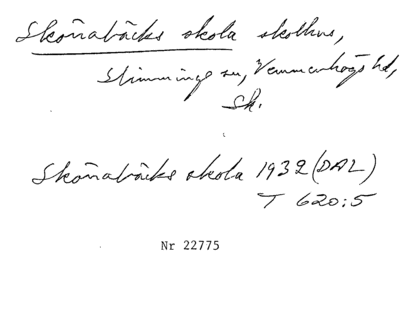 Skönabäcks skola skolhus,
Slimminge sn, Vemmenhögs hd,
Sk.
Skönabäcks skola 1932 (DAL)
T 620:5
Nr 22775